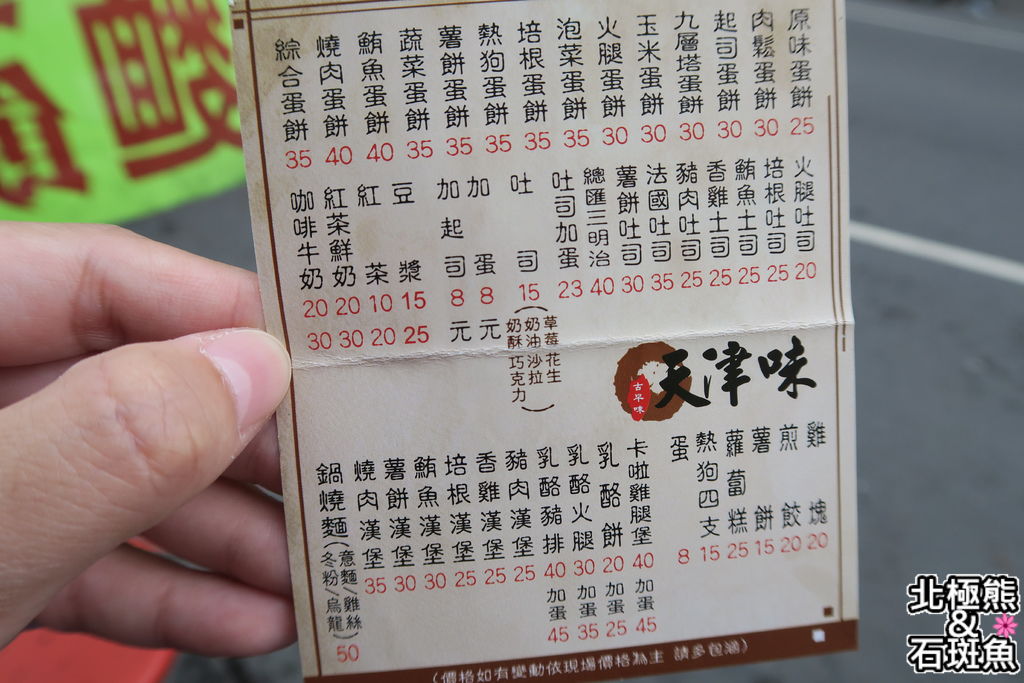 原味蛋餅 25
肉鬆蛋餅 30
起司蛋餅 30
九層塔蛋餅 30
玉米蛋餅 30
火腿蛋餅 30
泡菜蛋餅 35
培根蛋餅 35
熱狗蛋餅 35
薯餅蛋餅 35
蔬菜蛋餅 35
鮪魚蛋餅 40
燒肉蛋餅 40
綜合蛋餅 35
火腿吐司 20
培根吐司 25
鮪魚土司 25
香雞土司 25
豬肉吐司 25
法國吐司 35
薯餅吐司 30
總匯三明治 40
吐司加蛋 23
吐司 15
(草莓花生
奶油沙拉
奶酥巧克力)
加蛋 8元
加起司 8元
豆漿 15 25
紅茶 10 20
紅茶鮮奶 20 30
咖啡牛奶 20 30
古早味
天津味
雞塊 20
煎餃 20
薯餅 15
蘿蔔糕 25
熱狗四支 15
蛋 8
卡啦雞腿堡 40 加蛋 45
乳酪餅 20 加蛋 25
乳酪火腿 30 加蛋 35
乳酪豬排 40 加蛋 45
豬肉漢堡 25
香雞漢堡 25
培根漢堡 25
鮪魚漢堡 30
薯餅漢堡 30
燒肉漢堡 35
鍋燒麵(意麵/雞絲/冬粉/烏龍) 50
(價格如有變動依現場價格為主 請多包涵)
北極熊
&
石斑魚